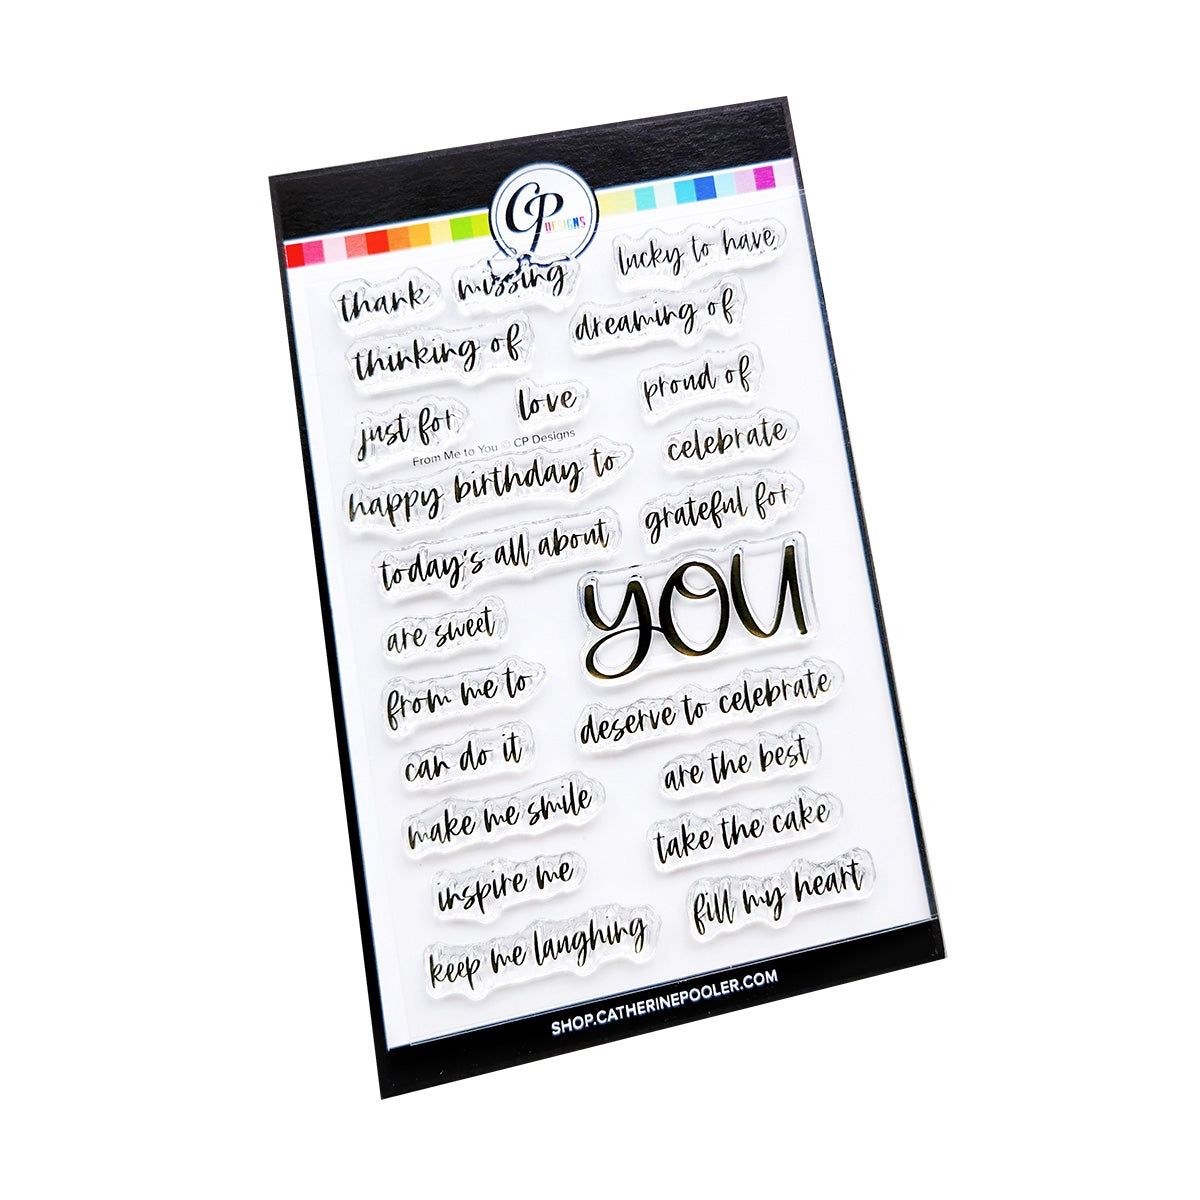 CP
DESIGNS
thank
missing
lucky to have
thinking of
dreaming of
just for
love
proud of
From Me to You © CP Designs
celebrate
happy birthday to
grateful for
today's all about
YOU
are sweet
from me to
deserve to celebrate
can do it
are the best
make me smile
take the cake
inspire me
fill my heart
keep me laughing
SHOP.CATHERINEPOOLER.COM